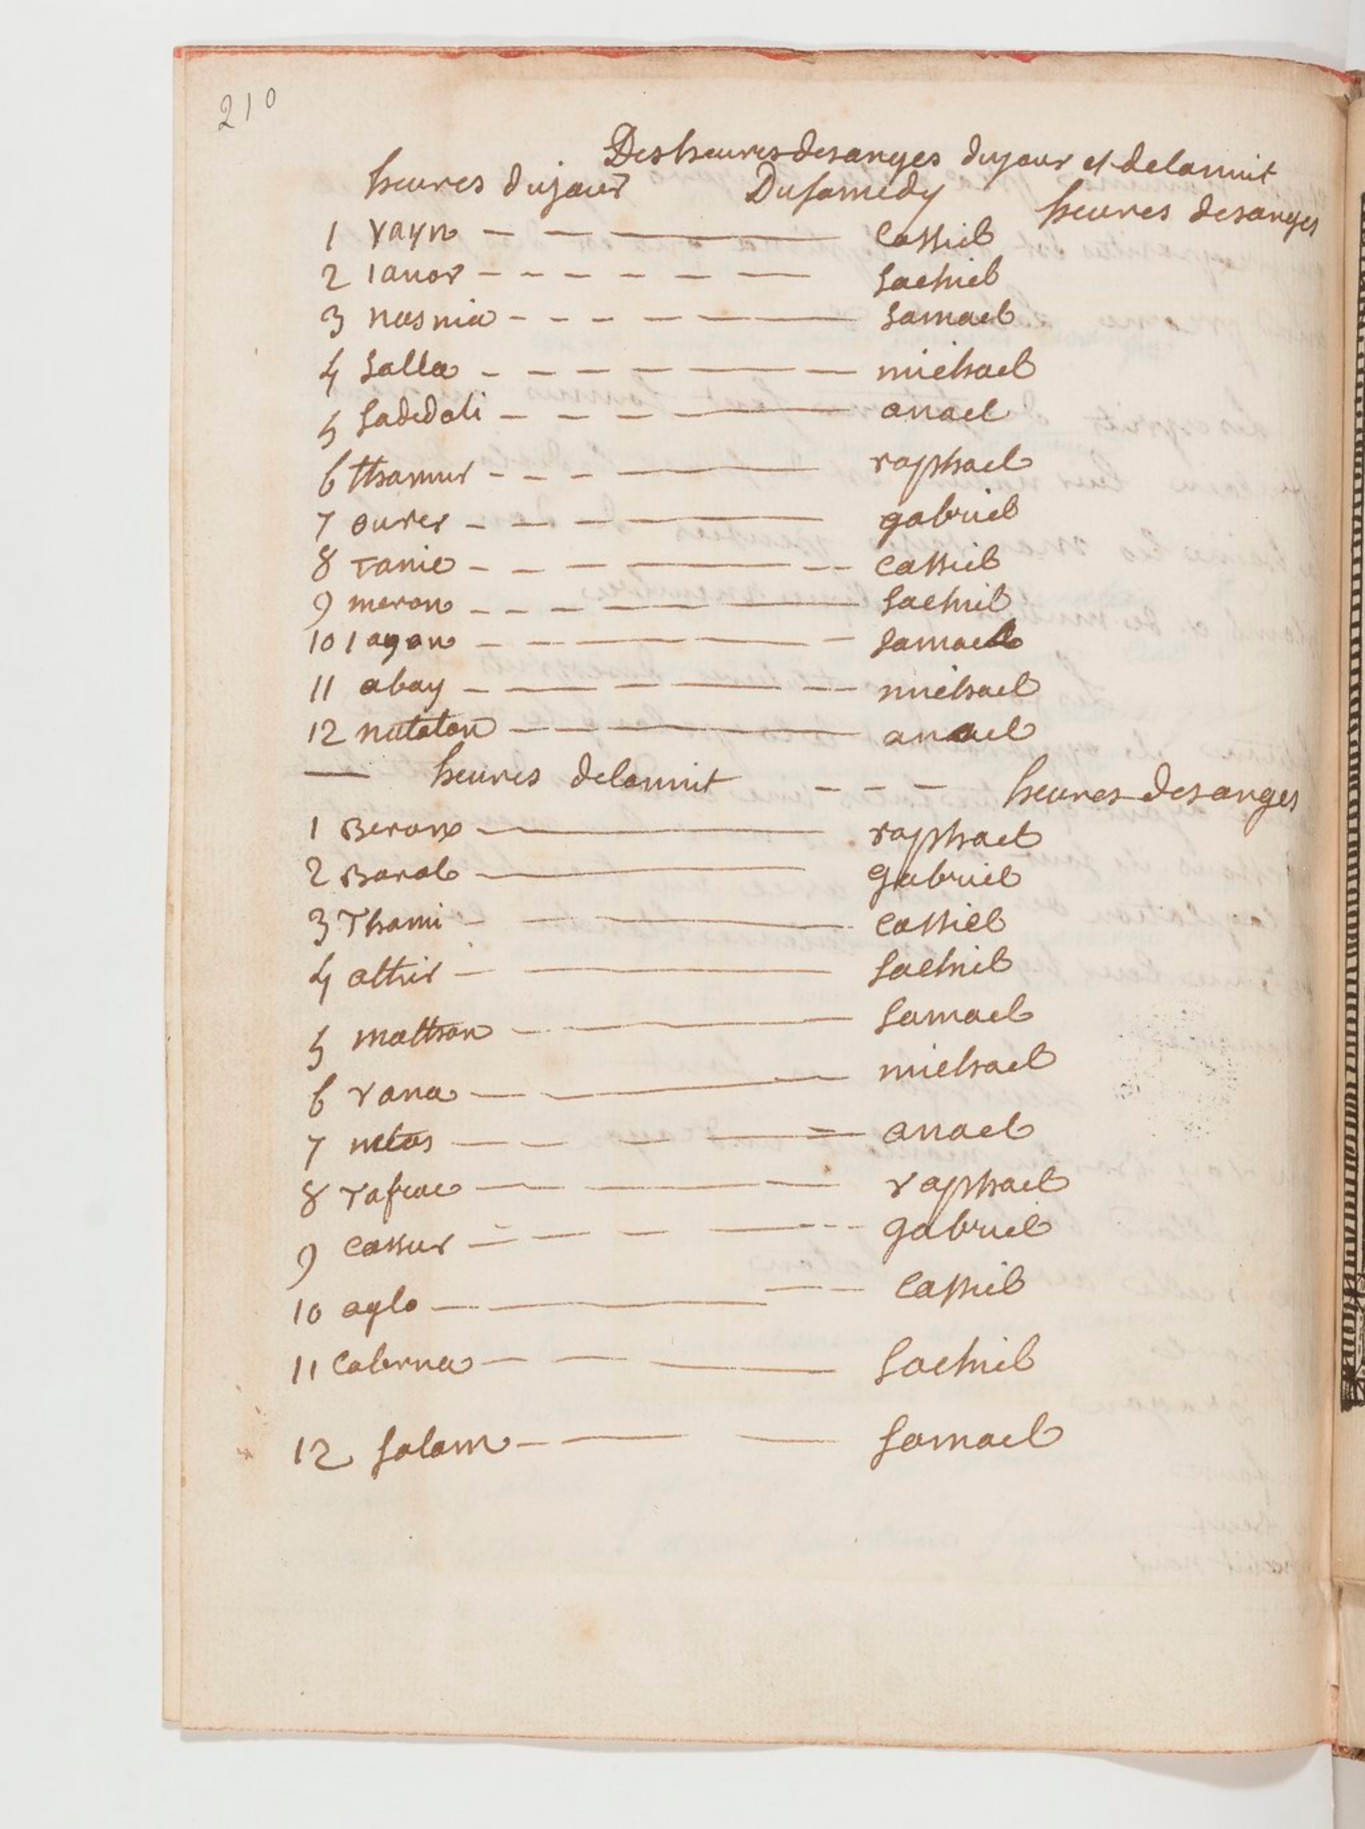 210
Des heures des anges du jour et de la nuit
heures du jour Du samedy heures des anges
1 yayn — — — cassiel
2 ianor - - - - - — sachiel
3 nasnia - - - — — samael
4 salla - - - - — — michael
5 sadedali - - - - — anael
6 thamur - - - — — raphael
7 ourer - - - - — gabriel
8 Tanic - - - — - - cassiel
9 meron - - - - — sachiel
10 iayon - - - — - samael
11 abay - — - — - - michael
12 natalon - - - — — anael
— heures de la nuit - - - heures des anges
1 Beron — raphael
2 Barol — gabriel
3 Thami - — cassiel
4 athir - — sachiel
5 mathon - — — samael
6 rana — — — michael
7 netos — - — = anael
8 Tafrac — — — — raphael
9 cassur — - — — - - gabriel
10 aglo — — — — cassiel
11 calerna - — — sachiel
12 salam - — — samael